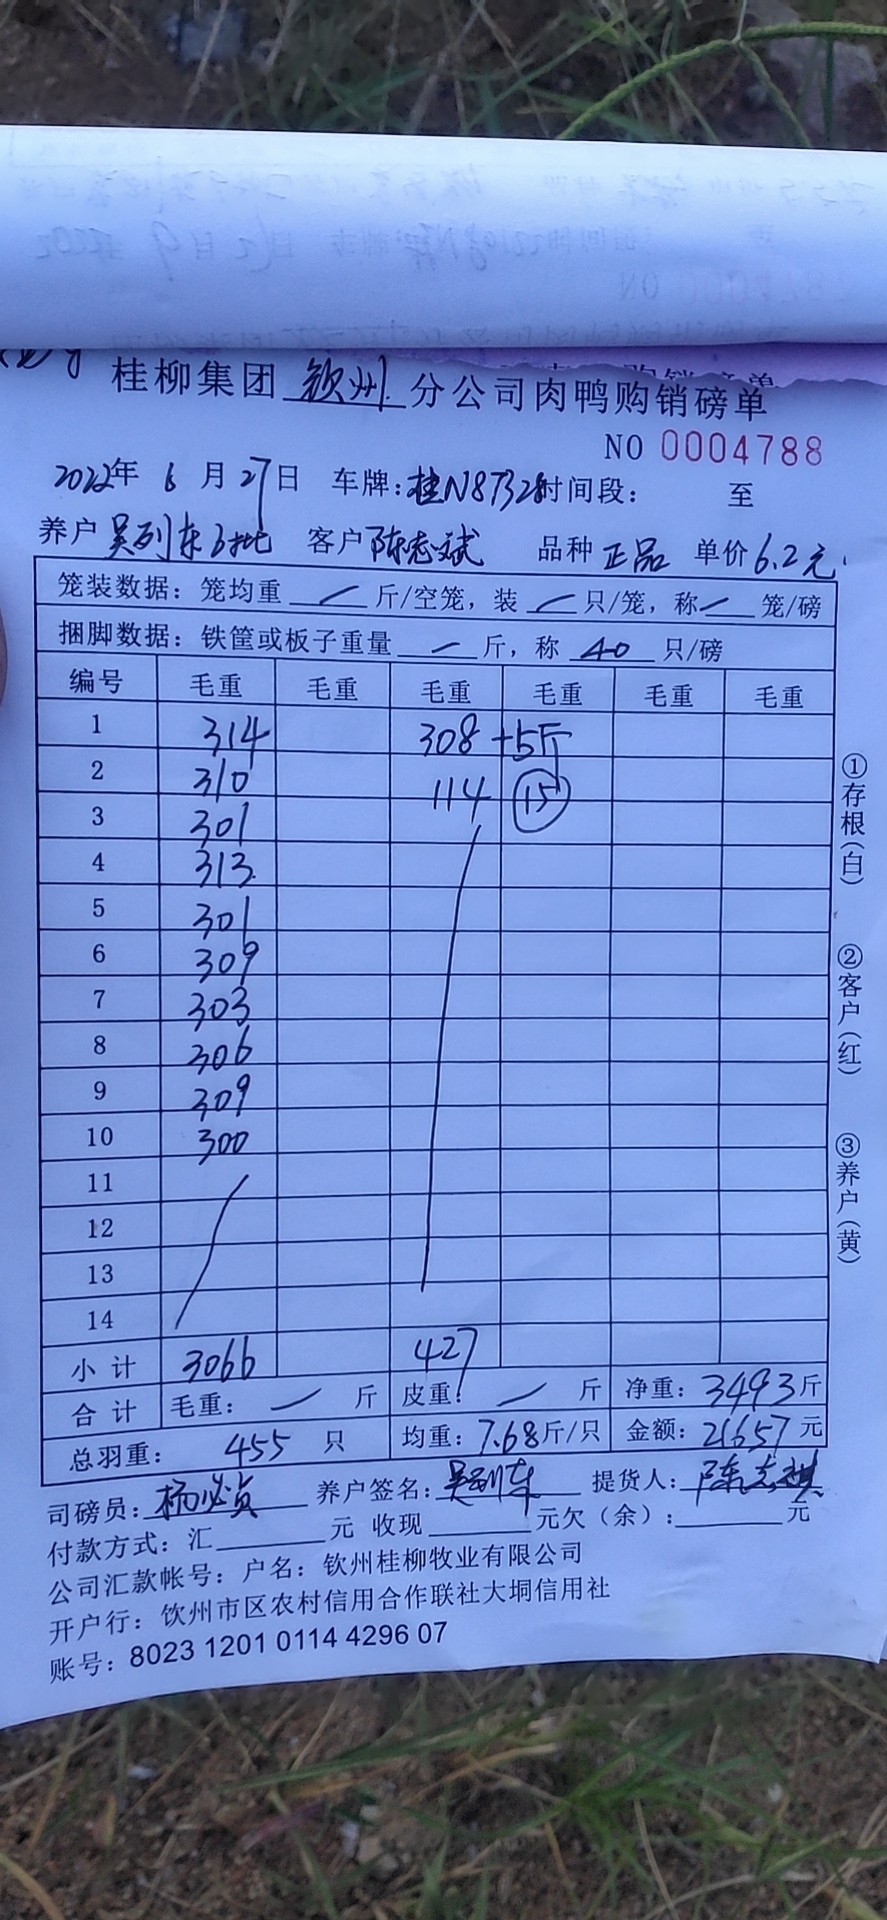 桂柳集团 钦州 分公司肉鸭购销磅单
NO 0004788
2022年 6月27日 车牌:桂N8732时间段: 至
养户 吴列东 批 客户 陈志斌 品种 正品 单价6.2元
笼装数据: 笼均重 / 斤/空笼, 装 / 只/笼, 称 / 笼/磅
捆脚数据: 铁筐或板子重量 / 斤, 称 40 只/磅
编号 毛重 毛重 毛重 毛重 毛重 毛重
1 314 308 +5斤
2 310 114 15
3 301
4 313
5 301
6 309
7 303
8 306
9 309
10 300
11
12
13
14
小计 3066 427
合计 毛重: / 斤 皮重: / 斤 净重: 3493斤
总羽重: 455 只 均重: 7.68斤/只 金额: 21657元
司磅员: 养户签名: 吴列东 提货人:
付款方式: 汇 元 收现 元欠(余): 元
公司汇款帐号: 户名: 钦州桂柳牧业有限公司
开户行: 钦州市区农村信用合作联社大垌信用社
账号: 8023 1201 0114 4296 07
①存根(白)
②客户(红)
③养户(黄)